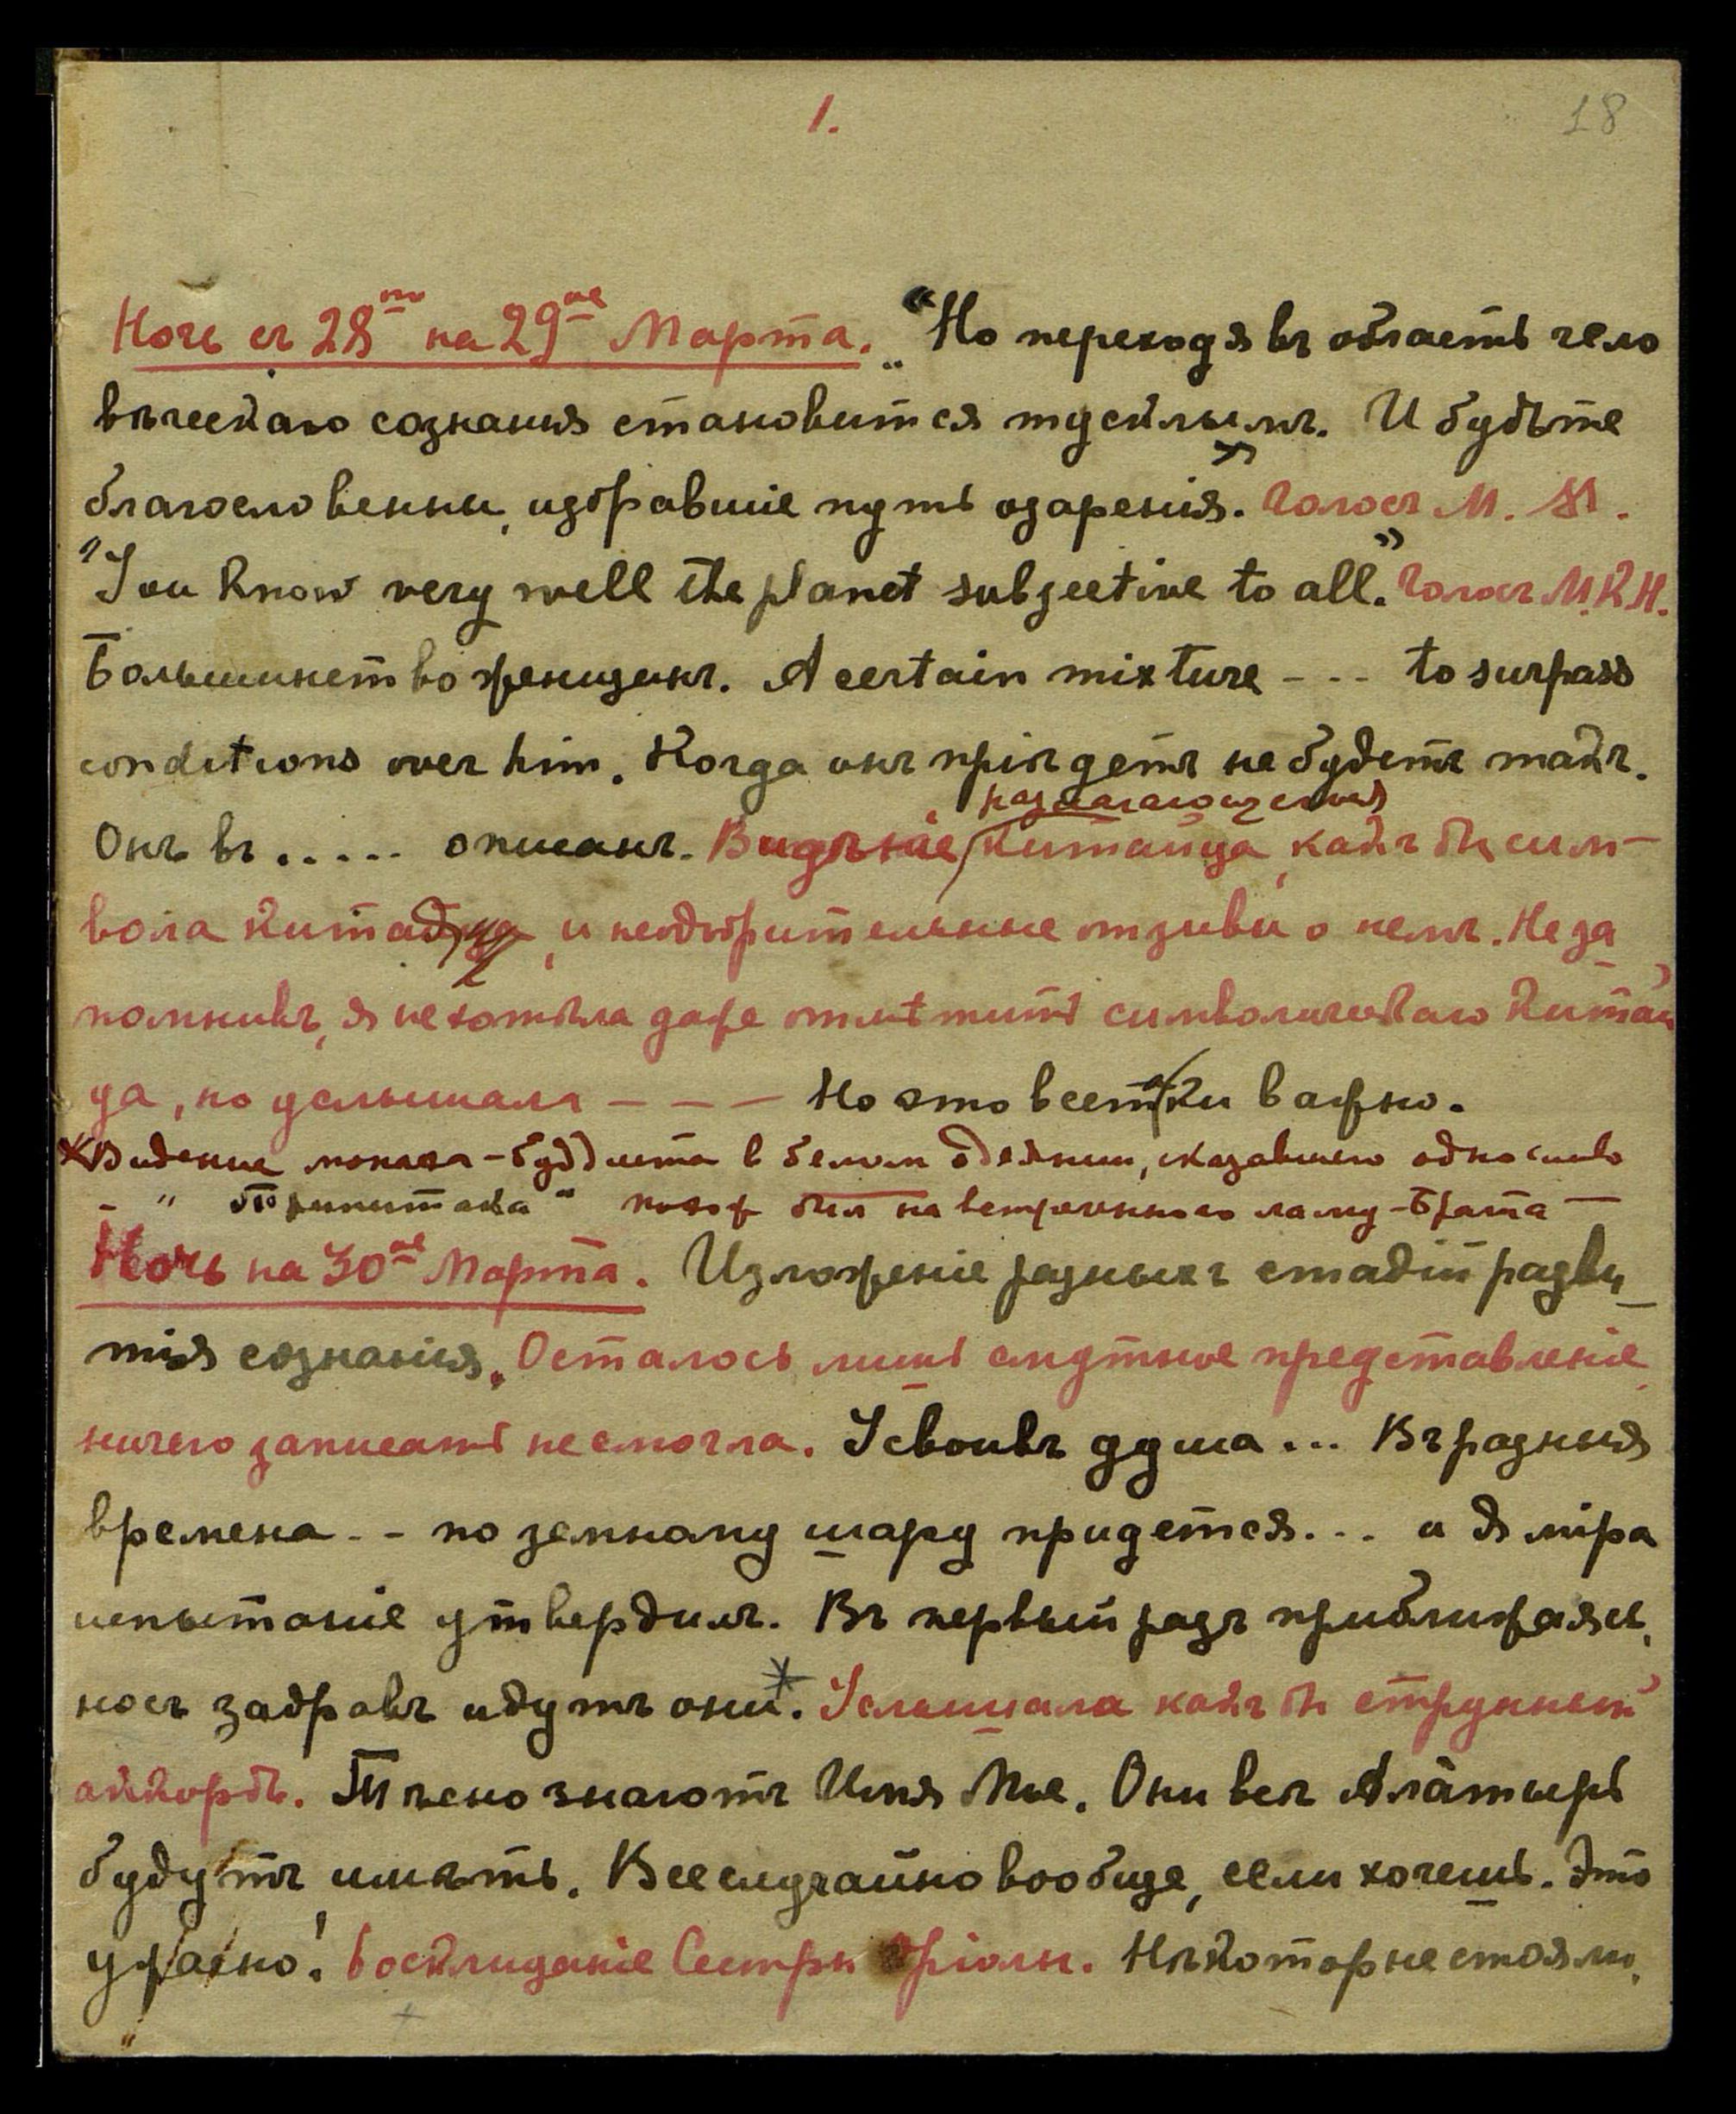 1.
18
Ночь съ 28го на 29ое Марта. "Но переходя въ область чело
вѣческаго сознанія становится тусклымъ. И будьте
благословенны, избравшіе путь озаренія." Голосъ М. М.
"You know very well the planet subjective to all." Голосъ М.К.Н.
Большинство женщинъ. A certain mixture - - - to surpass
conditions over him. Когда онъ пріѣдетъ не будетъ такъ.
разлагающегося
Онъ въ ..... описанъ. Видѣніе китайца, какъ бы сим-
вола Китая, и неодобрительные отзывы о немъ. Не за
помнивъ, я не хотѣла даже отмѣтить символическаго Китай
ца, но услышала - - - Но это всетаки важно.
Видение монаха-буддиста в белом одеянии, сказавшего одно слово
- "Трипитака" похож был на встреченного ламу-брата —
Ночь на 30ое Марта. Изложеніе разныхъ стадій разви
тія сознанія. Осталось лишь смутное представленіе,
ничего записать не смогла. Усвоивъ душа ... Въ разныя
времена - - по земному шару придется... и Я міра
испытаніе утвердилъ. Въ первый разъ приближаясь,
носъ задравъ идутъ они*. Услышала какъ бы струнный
аккордъ. Тѣсно знаютъ Имя Мое. Они всѣ Алатырь
будутъ имѣть. Все случайно вообще, если хочешь. Это
ужасно! Восклицаніе Сестры Оріолы. Нѣкоторые стояли,